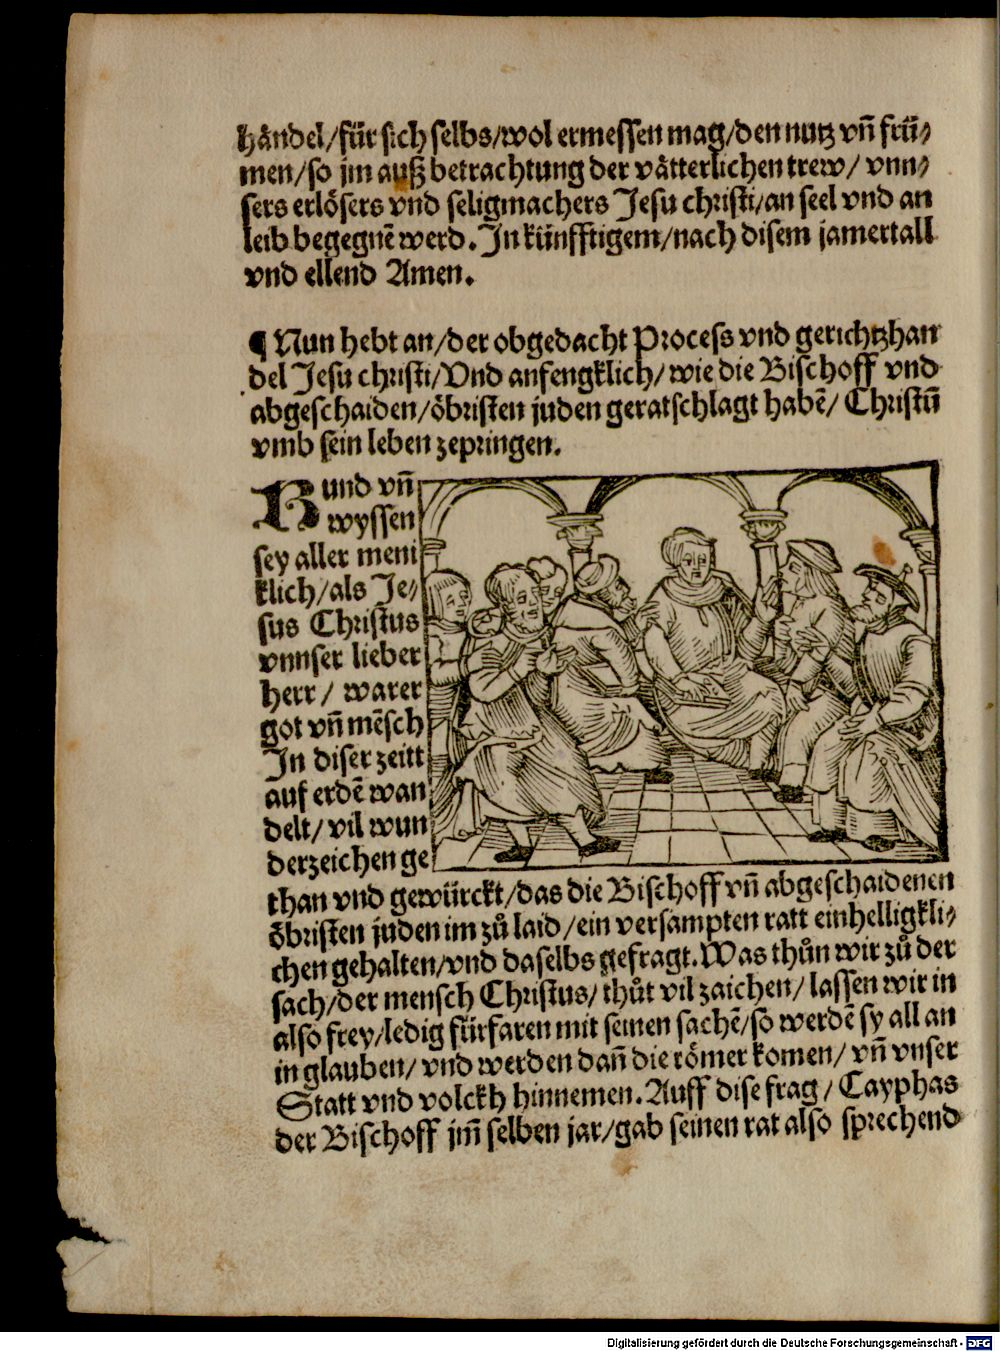 händel/für sich selbs/wol ermessen mag/den nutz vñ frü⸗
men/so jm auß betrachtung der vätterlichen trew/ vnn⸗
sers erlösers vnd seligmachers Jesu christi/an seel vnd an
leib begegnē werd. In künfftigem/nach disem jamertall
vnd ellend Amen.
¶ Nun hebt an/der obgedacht Process vnd gerichtzhan
del Jesu christi/Vnd anfengklich/wie die Bischoff vnd
abgeschaiden/öbristen juden geratschlagt habē/ Christū
vmb sein leben zepringen.
Kund vñ
wyssen
sey aller meni
klich/als Je⸗
sus Christus
vnnser lieber
herr/ warer
got vñ mēsch
In diser zeitt
auf erdē wan
delt/ vil wun
derzeichen ge
than vnd gewürckt/das die Bischoff vñ abgeschaidenen
öbristen juden im zů laid/ein versampten ratt einhelligkli⸗
chen gehalten/vnd daselbs gefragt. Was thůn wir zů der
sach/der mensch Christus/ thůt vil zaichen/ lassen wir in
also frey/ledig fürfaren mit seinen sachē/so werdē sy all an
in glauben/ vnd werden dañ die römer komen/ vñ vnser
Statt vnd volckh hinnemen. Auff dise frag/ Cayphas
der Bischoff jm̄ selben jar/gab seinen rat also sprechend
Digitalisierung gefördert durch die Deutsche Forschungsgemeinschaft - DFG